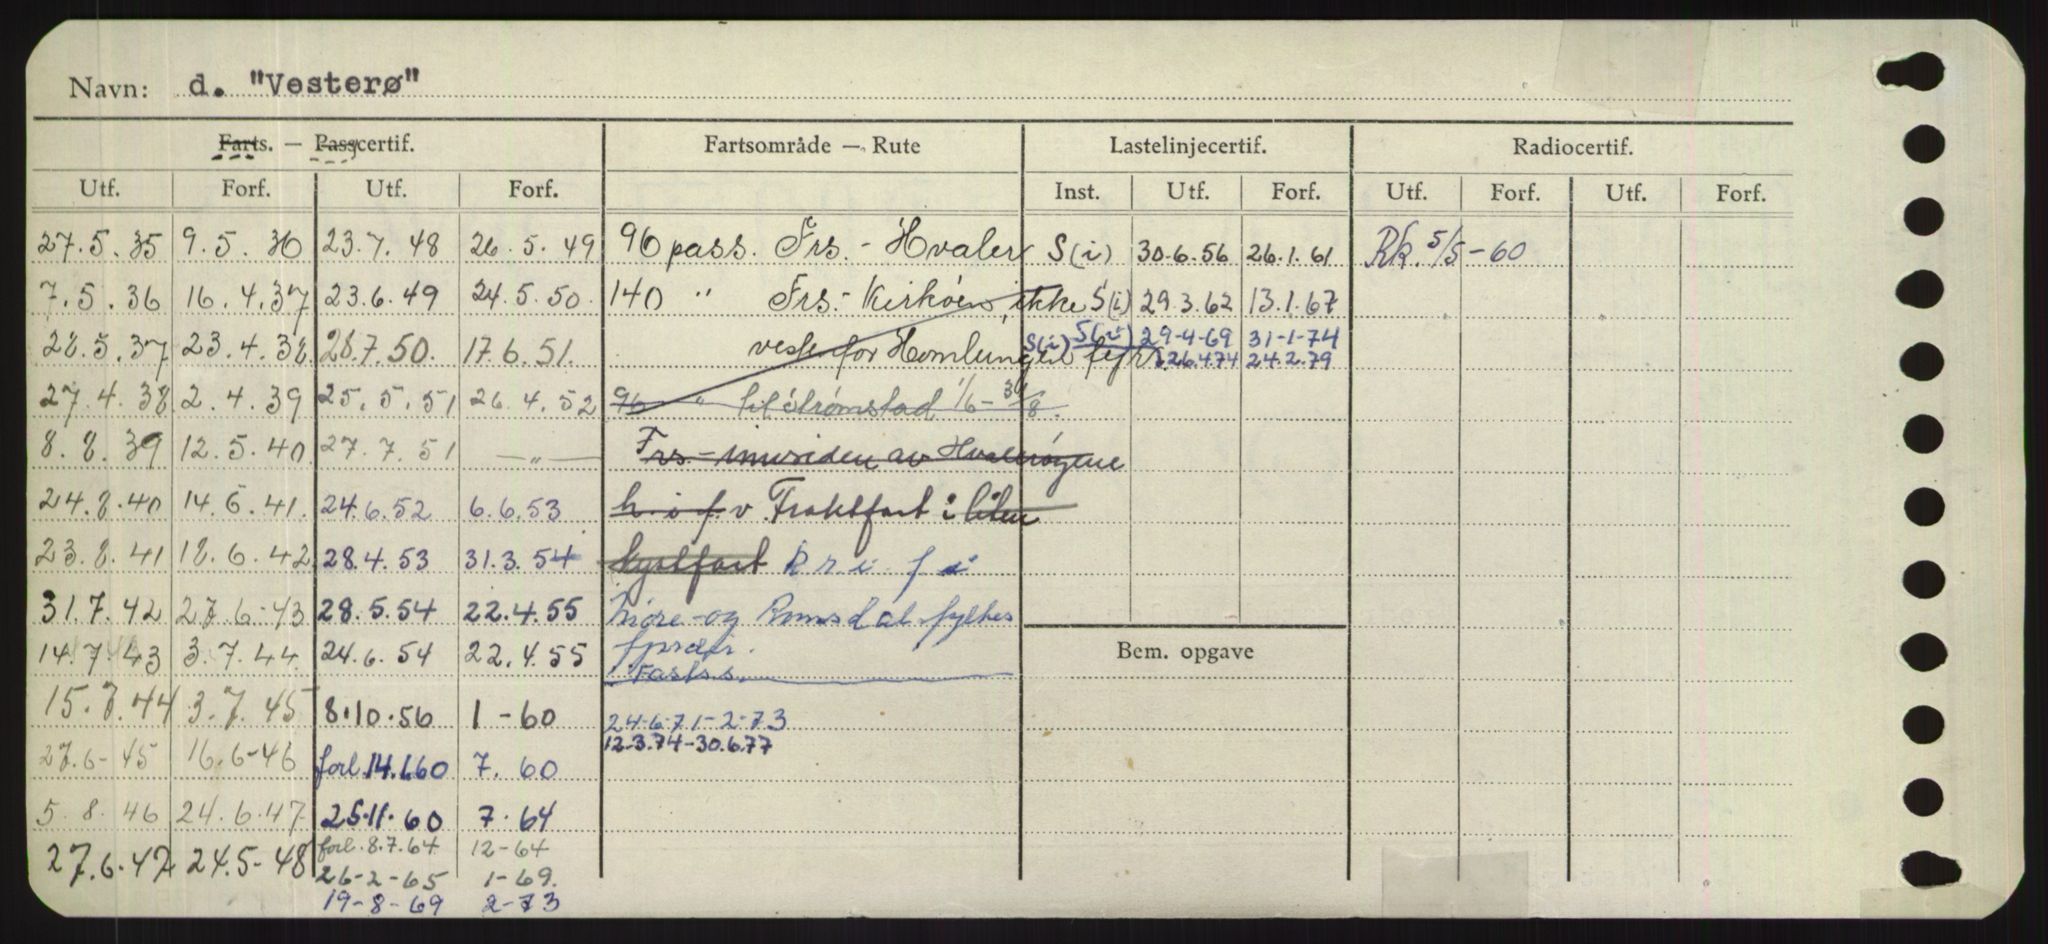 Navn: d. "Vesterø"
Farts. — Passcertif. Fartsområde — Rute Lastelinjecertif. Radiocertif.
Utf. Forf. Utf. Forf. Inst. Utf. Forf. Utf. Forf. Utf. Forf.
27.5.35 9.5.36 23.7.48 26.5.49 96 pass. Frs. - Hvaler S(i) 30.6.56 26.1.61 Rk. 5/5-60
7.5.36 16.4.37 23.6.49 24.5.50. 140 " Frs. - Kirköen, ikke S(i) 29.3.62 13.1.67
28.5.37 23.4.38 28.7.50. 17.6.51. vestenfor Homlungen fyr. S(i) S(i) 29-4-69 31-1-74
26.4.74 24.2.79
27.4.38 2.4.39 25.5.51 26.4.52 96 " til Strømstad 1/6-31/8.
8.8.39 12.5.40 27.7.51 —"— Frs. - innsiden av Hvalerøyene
24.8.40 14.6.41. 24.6.52 6.6.53 h.i.f.v. Fraktfart i liten
23.8.41 18.6.42 28.4.53 31.3.54 kystfart
31.7.42 27.6-43 28.5.54 22.4.55 Møre-og Romsdal fylkes
14.7.43 3.7.44 24.6.54 22.4.55
15.7.44 3.7.45 8.10.56 1-60 24-6-71-2-73
12.3.74-30.6.77
27.6-45 16.6-46 forl.14.1.60 7. 60
Bem. opgave
5.8.46 24.6.47 25.11.60 7.64
27.6.47 24.5-48 forl.8.7.64 12-64
26-2-65 1-69.
19-8-69 2-73